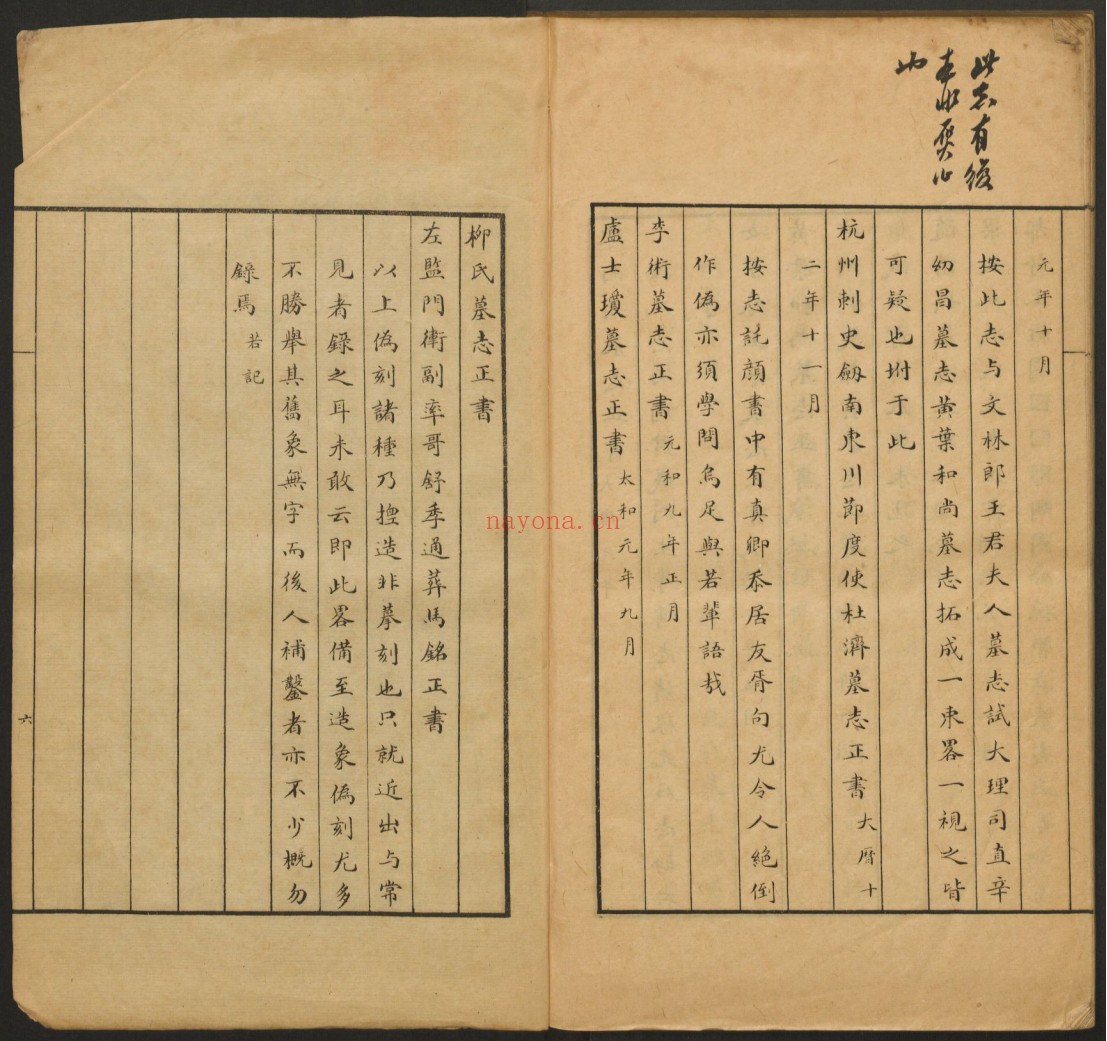 此志有後
也
元年十月
按此志与文林郎王君夫人墓志試大理司直辛
幼昌墓志黄葉和尚墓志拓成一束畧一視之皆
可疑也坿于此
杭州刺史劔南東川節度使杜濟墓志正書大曆十
二年十一月
按志託顔書中有真卿忝居友胥句尤令人絶倒
作僞亦須學問烏足與若輩語哉
李術墓志正書元和九年正月
盧士瓊墓志正書太和元年九月
柳氏墓志正書
左監門衛副率哥舒季通葬馬銘正書
以上僞刻諸種乃揑造非摹刻也只就近出与常
見者錄之耳未敢云即此畧備至造象僞刻尤多
不勝舉其舊象無字而後人補鑿者亦不少概勿
錄馬若記
六
nayona.cn